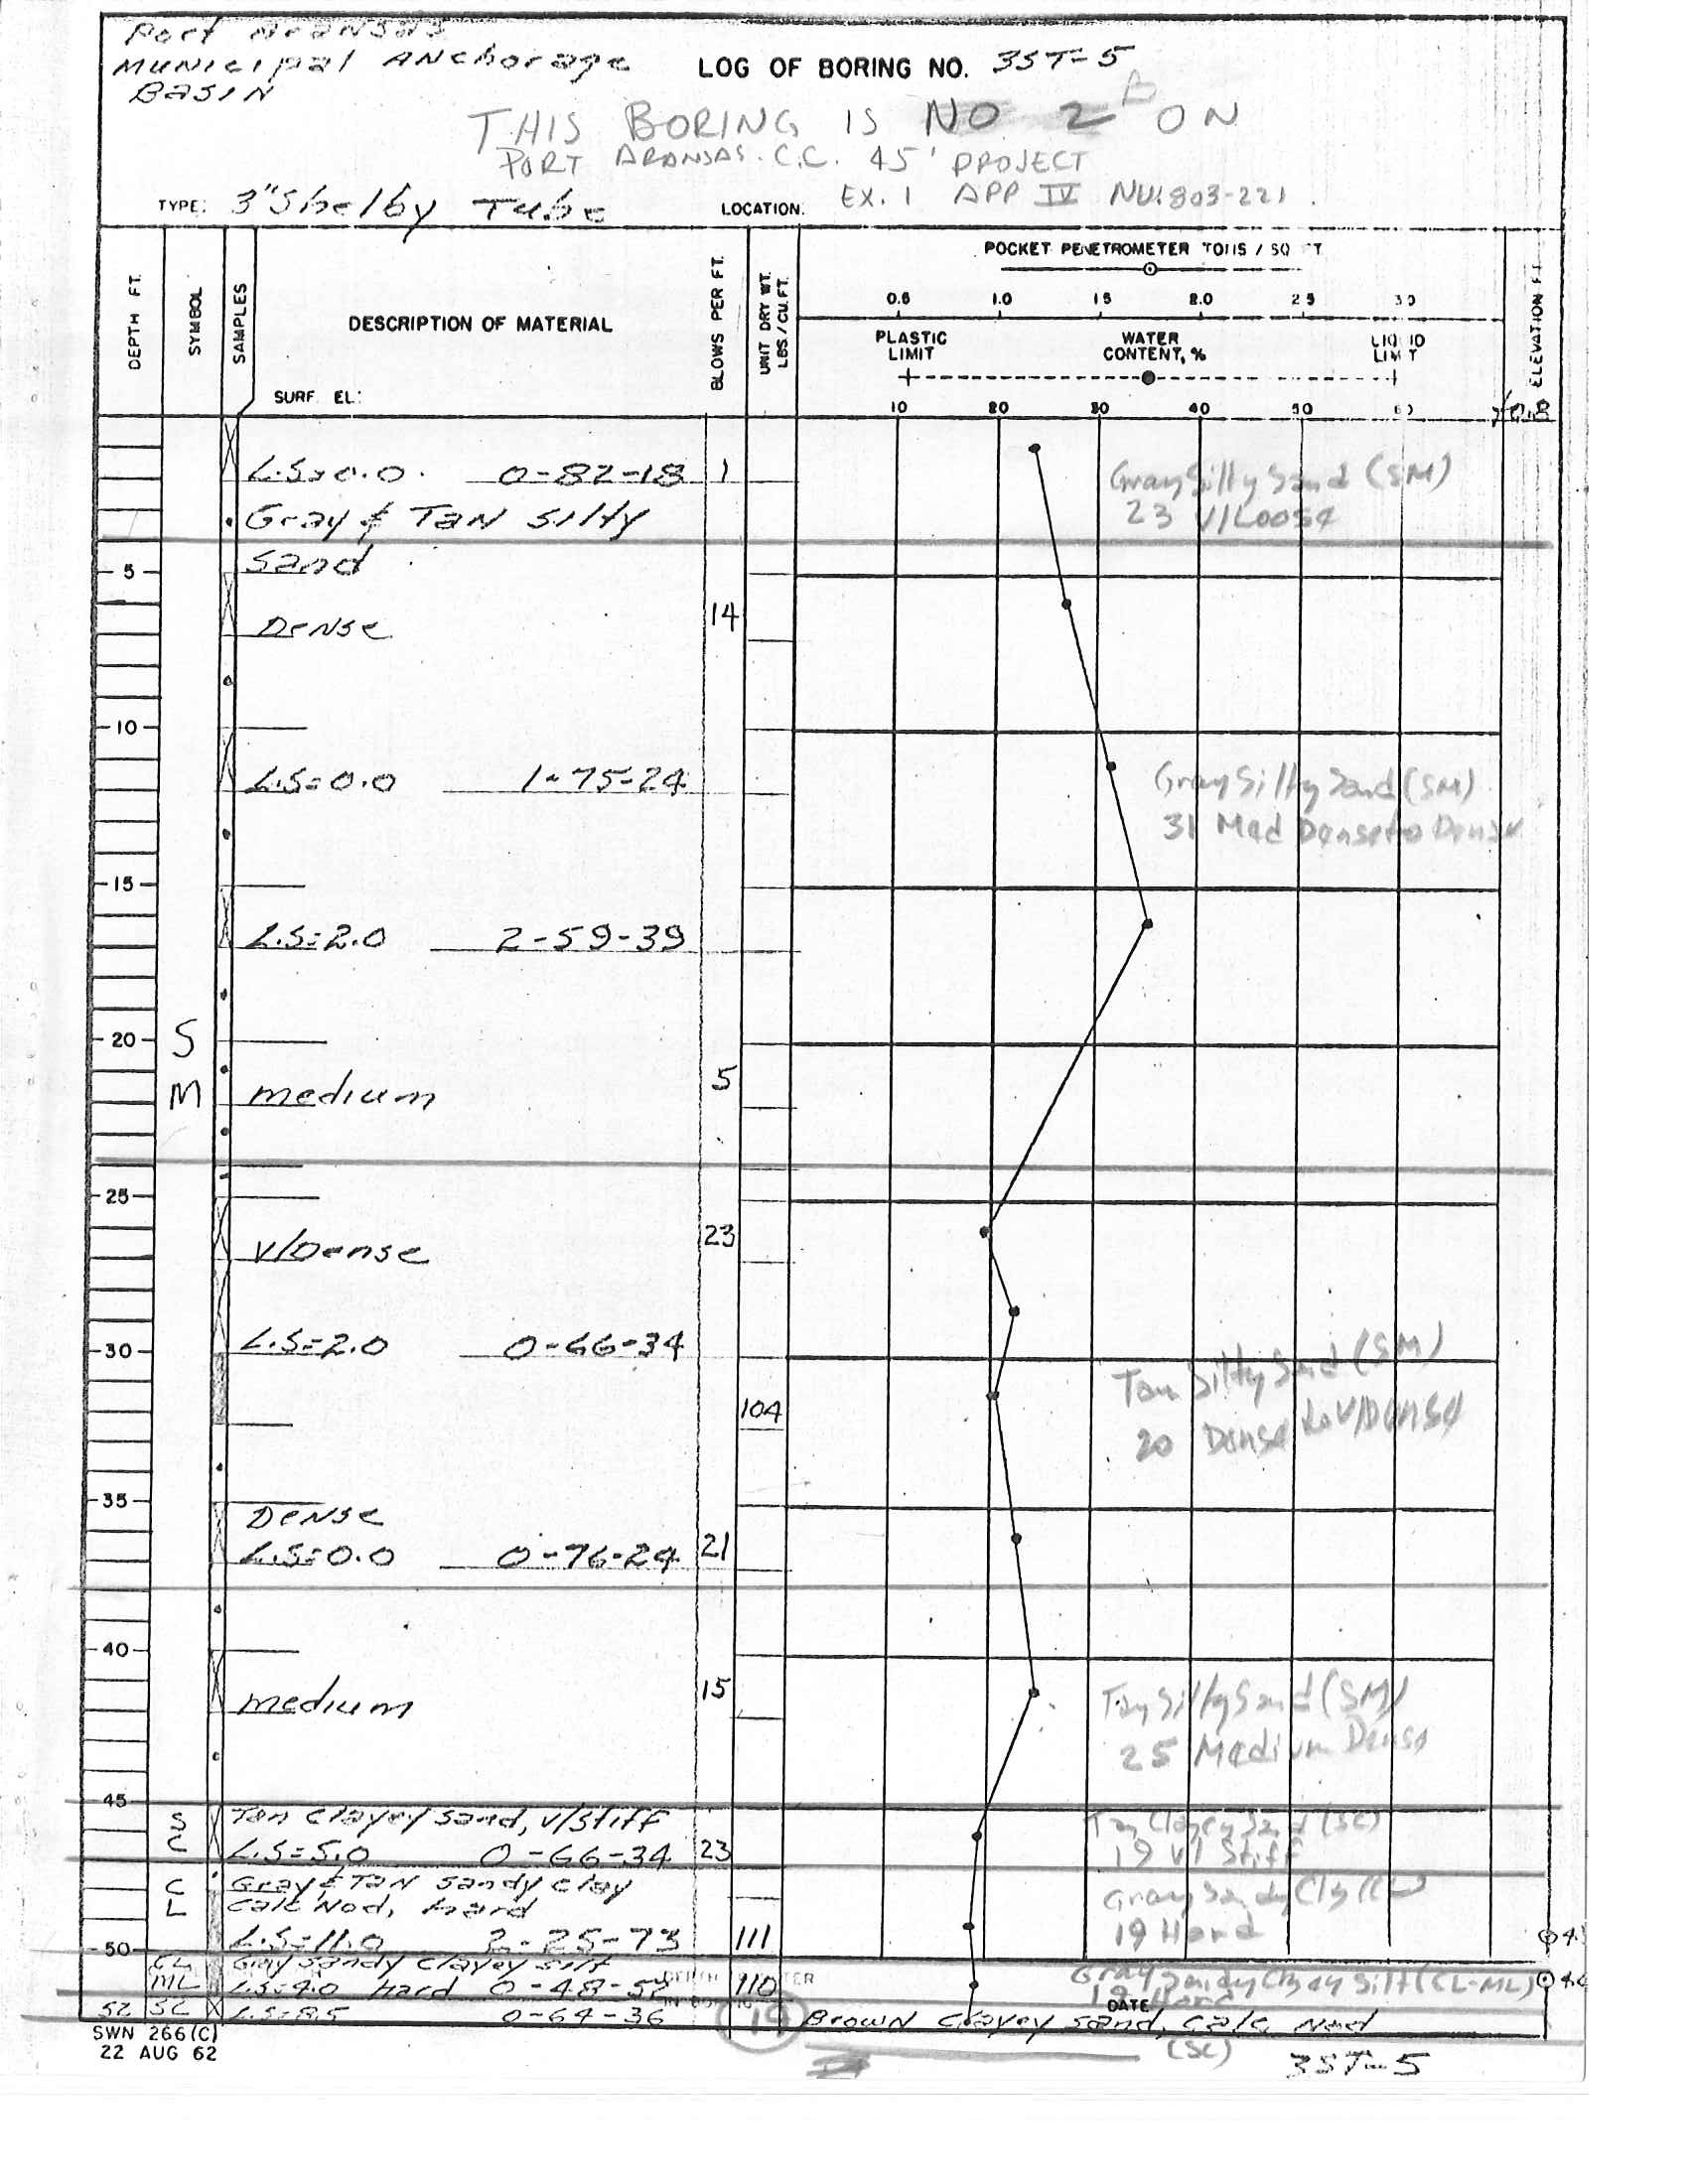 Port Aransas
Municipal Anchorage
Basin
LOG OF BORING NO. 3ST-5
THIS BORING IS NO 2 ON
PORT ARANSAS. C.C. 45' PROJECT
EX. 1 APP IV NUI803-221.
TYPE: 3"Shelby Tube
LOCATION:
DEPTH FT.
SYMBOL
SAMPLES
DESCRIPTION OF MATERIAL
SURF. EL:
BLOWS PER FT.
UNIT DRY WT. LBS./CU.FT.
POCKET PENETROMETER TONS / SQ FT
0.5 1.0 1.5 2.0 2.5 3.0
PLASTIC LIMIT
WATER CONTENT, %
LIQUID LIMIT
10 20 30 40 50 60
ELEVATION FT.
L.S=0.0. 0-82-18 1
Gray Silty Sand (SM)
23 V/Loose
Gray & Tan Silty
Sand
5
Dense 14
10
L.S=0.0 1-75-24
Gray Silty Sand (SM)
31 Med Dense to Dense
15
L.S=2.0 2-59-39
20 S
M medium 5
25
V/Dense 23
30 L.S=2.0 0-66-34
Tan Silty Sand (SM)
20 Dense to V/Dense
104
35
Dense
L.S=0.0 0-76-24 21
40
medium 15
Tan Silty Sand (SM)
25 Medium Dense
45
SC Tan Clayey Sand, v/stiff
L.S=5.0 0-66-34 23
Tan Clayey Sand (SC)
19 V/ Stiff
CL Gray & Tan Sandy Clay
Calc Nod, hard
Gray Sandy Cly (CL)
19 Hard
50 L.S=11.0 2-25-73 111
CL ML Gray Sandy Clayey Silt
L.S=4.0 hard 0-48-52 110
Gray Sandy Clay Silt (CL-ML)
19 Hard
SC SC L.S=8.5 0-64-36
DATE
19
Brown Clayey Sand, Calc Nod
(SC)
SWN 266(C)
22 AUG 62
3ST-5